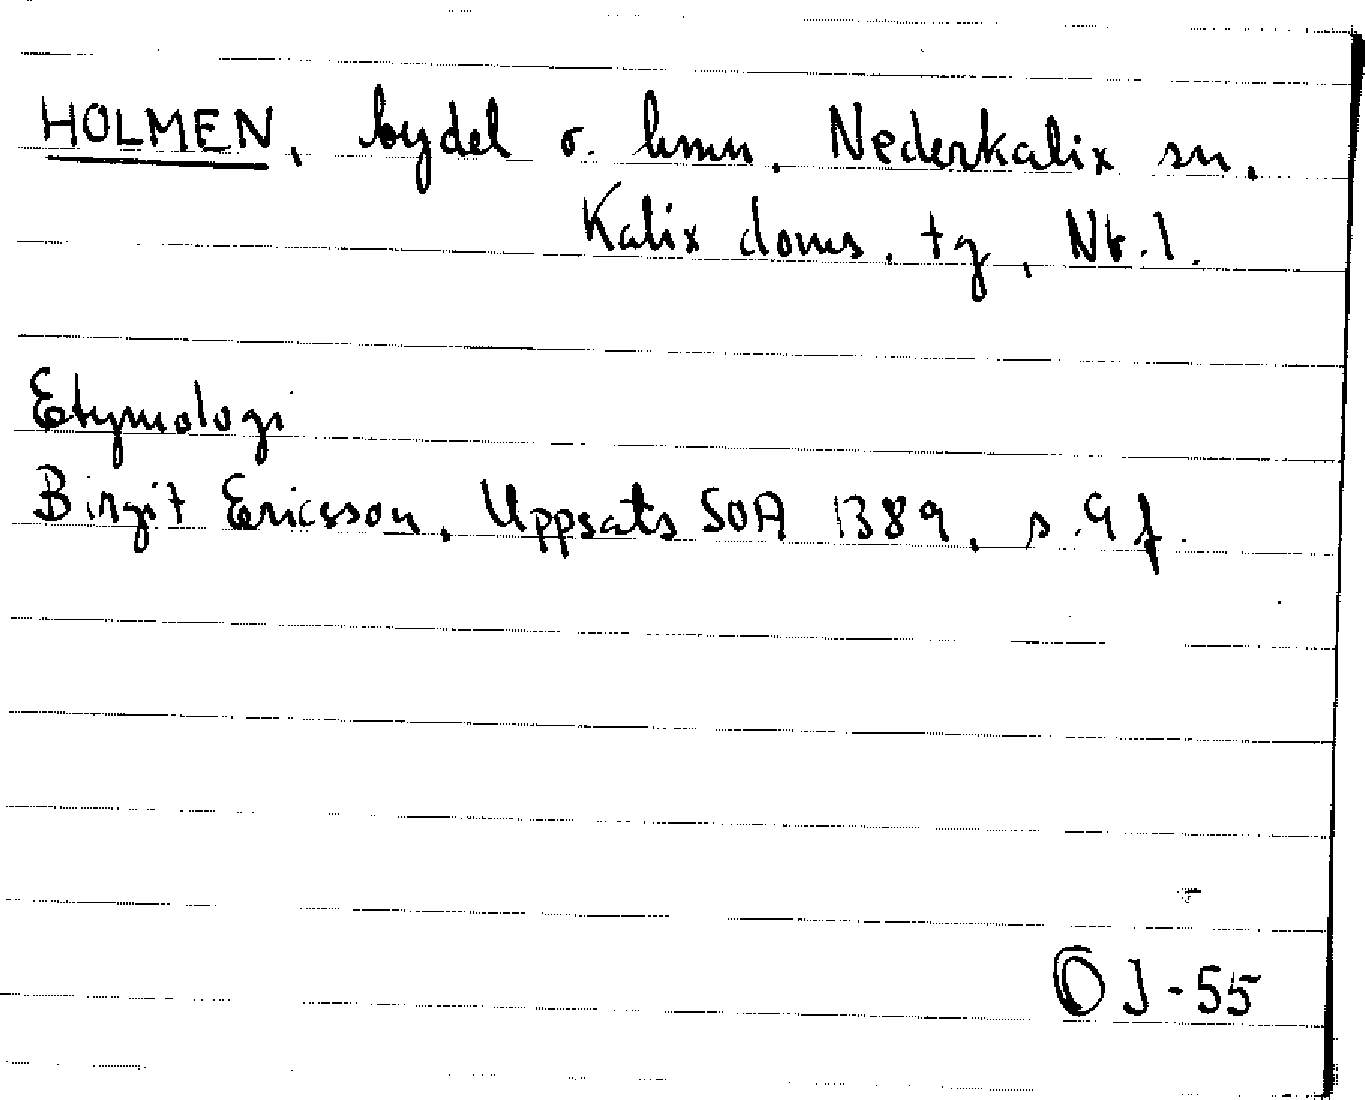 HOLMEN, bydel o. hmn, Nederkalix sn,
Kalix doms. tg, Nb. l.
Etymologi
Birgit Ericsson, Uppsats SOA 1389, s. 9 f.
OJ-55